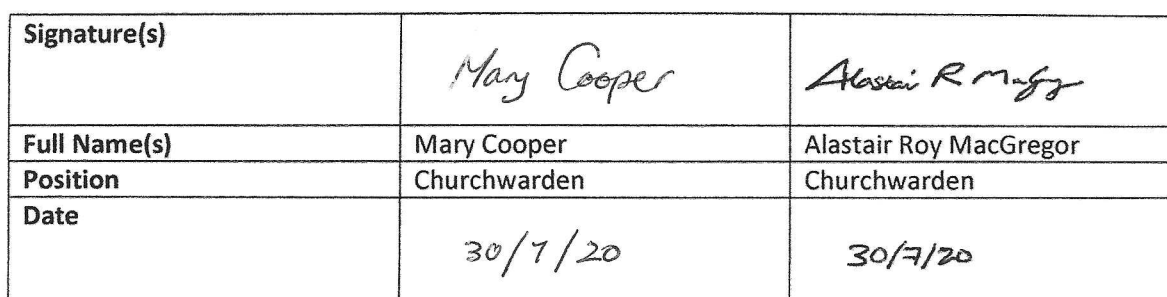 Signature(s) Mary Cooper Alastair R MacGregor
Full Name(s) Mary Cooper Alastair Roy MacGregor
Position Churchwarden Churchwarden
Date 30/7/20 30/7/20